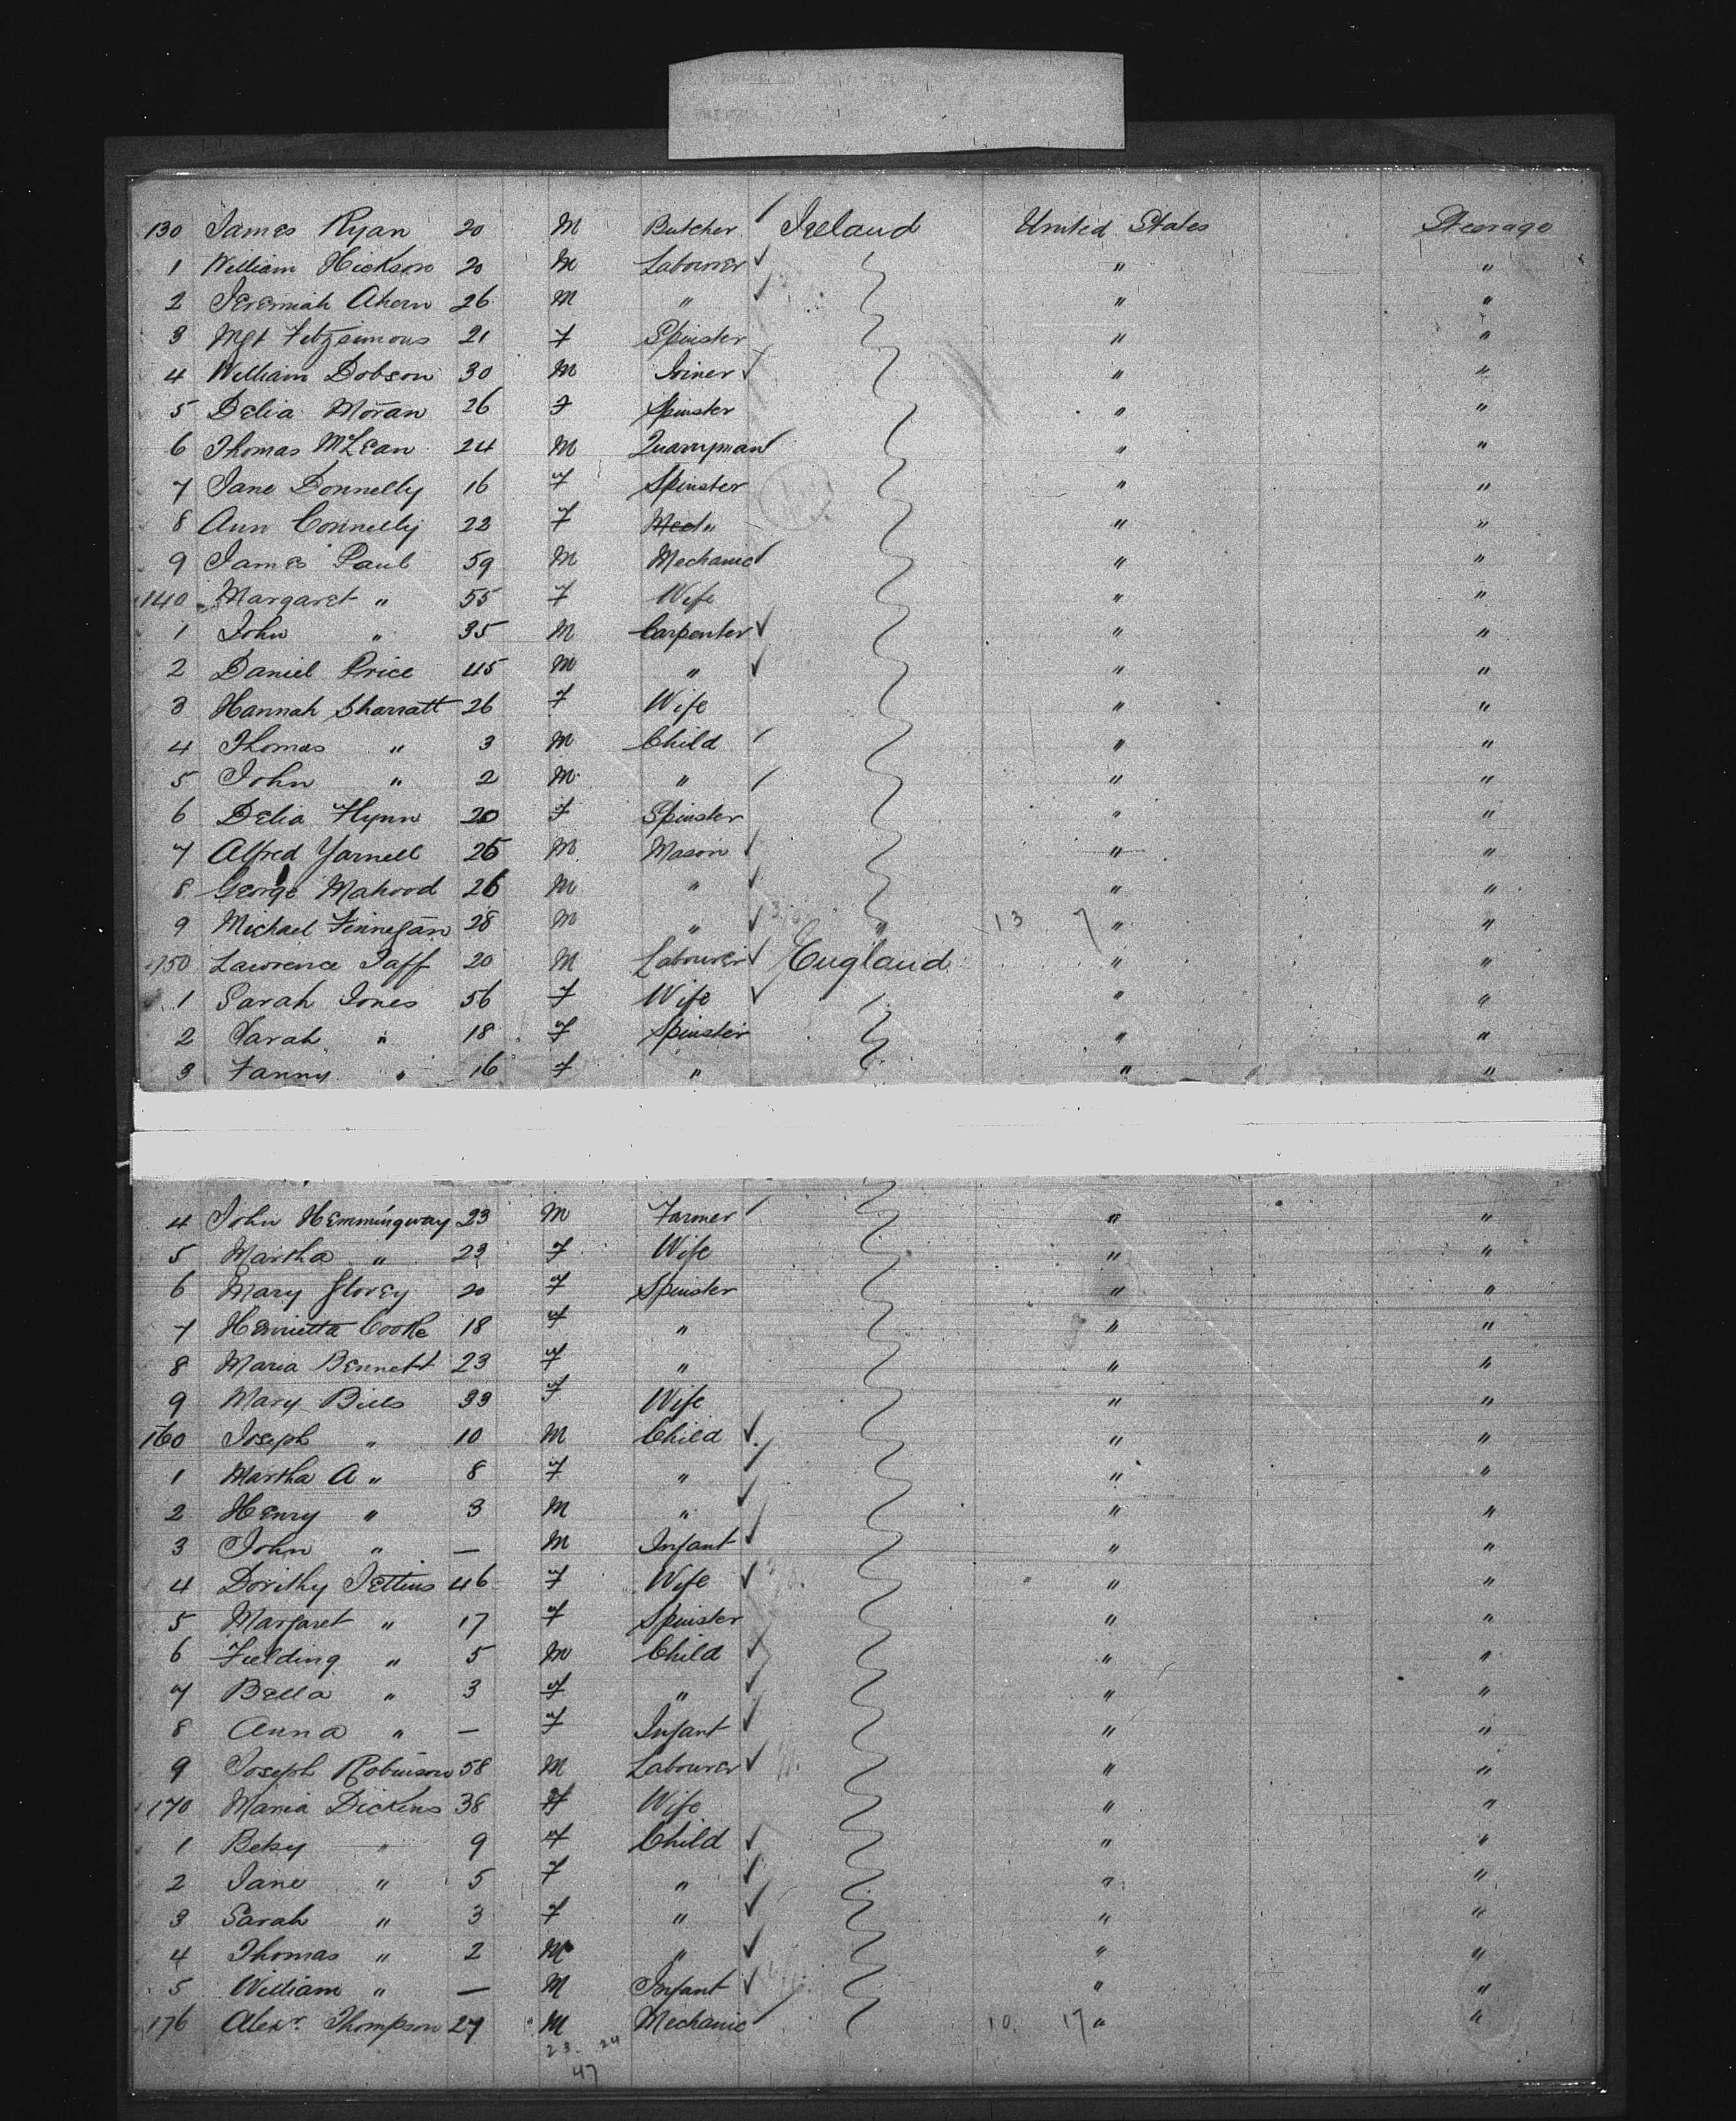 130 James Ryan 20 M Butcher Ireland United States Steerage
1 William Hickson 20 M Labourer " "
2 Jeremiah Ahern 26 M " " "
3 Mgt Fitzsimons 21 F Spinster " "
4 William Dobson 30 M Joiner " "
5 Delia Moran 26 F Spinster " "
6 Thomas McLean 24 M Quarryman " "
7 Jane Donnelly 16 F Spinster " "
8 Ann Connelly 22 F " " "
9 James Paul 59 M Mechanic " "
140 Margaret " 55 F Wife " "
1 John " 35 M Carpenter " "
2 Daniel Price 45 M " " "
3 Hannah Sharratt 26 F Wife " "
4 Thomas " 3 M Child " "
5 John " 2 M " " "
6 Delia Flynn 20 F Spinster " "
7 Alfred Yarnell 25 M Mason " "
8 George Mahood 26 M " " "
9 Michael Finnegan 28 M " " 13 7 " "
150 Lawrence Taff 20 M Labourer England " "
1 Sarah Jones 56 F Wife " "
2 Sarah " 18 F Spinster " "
3 Fanny " 16 F " " "
4 John Hemmingway 23 M Farmer " "
5 Martha " 23 F Wife " "
6 Mary Storey 20 F Spinster " "
7 Henrietta Cooke 18 F " " "
8 Maria Bennett 23 F " " "
9 Mary Biels 33 F Wife " "
160 Joseph " 10 M Child " "
1 Martha A " 8 F " " "
2 Henry " 3 M " " "
3 John " — M Infant " "
4 Dorithy Jettins 46 F Wife " "
5 Margaret " 17 F Spinster " "
6 Fielding " 5 M Child " "
7 Bella " 3 F " " "
8 Anna " — F Infant " "
9 Joseph Robinson 58 M Labourer " "
170 Maria Dickens 38 F Wife " "
1 Betsy " 9 F Child " "
2 Jane " 5 F " " "
3 Sarah " 3 F " " "
4 Thomas " 2 M " " "
5 William " — M Infant " "
176 Alexr. Thompson 27 M Mechanic 10 17 " "
23 24
47